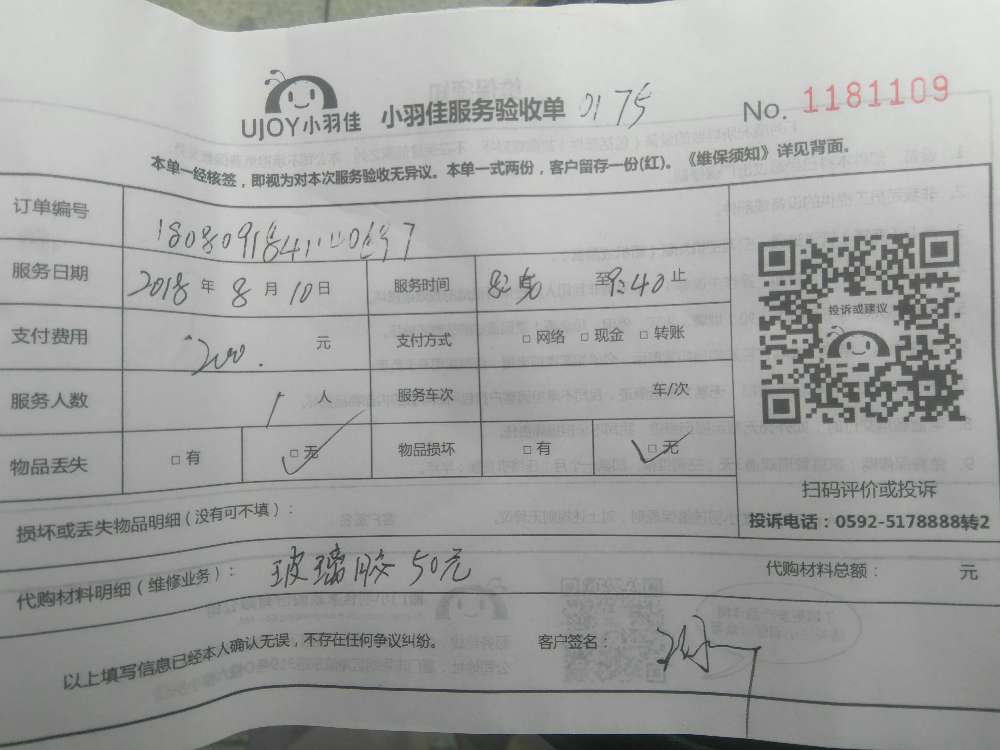 UJOY小羽佳 小羽佳服务验收单 0175 No. 1181109
本单一经核签，即视为对本次服务验收无异议。本单一式两份，客户留存一份(红)。《维保须知》详见背面。
订单编号
服务日期 2018 年 8 月 10 日 服务时间 至 9:40 止
支付费用 200. 元 支付方式 □ 网络 □ 现金 □ 转账
服务人数 1 人 服务车次 车/次
物品丢失 □ 有 □ 无 物品损坏 □ 有 □ 无
投诉或建议
扫码评价或投诉
投诉电话：0592-5178888转2
损坏或丢失物品明细（没有可不填）：
代购材料明细（维修业务）： 玻璃胶 50元 代购材料总额： 元
以上填写信息已经本人确认无误，不存在任何争议纠纷。 客户签名：